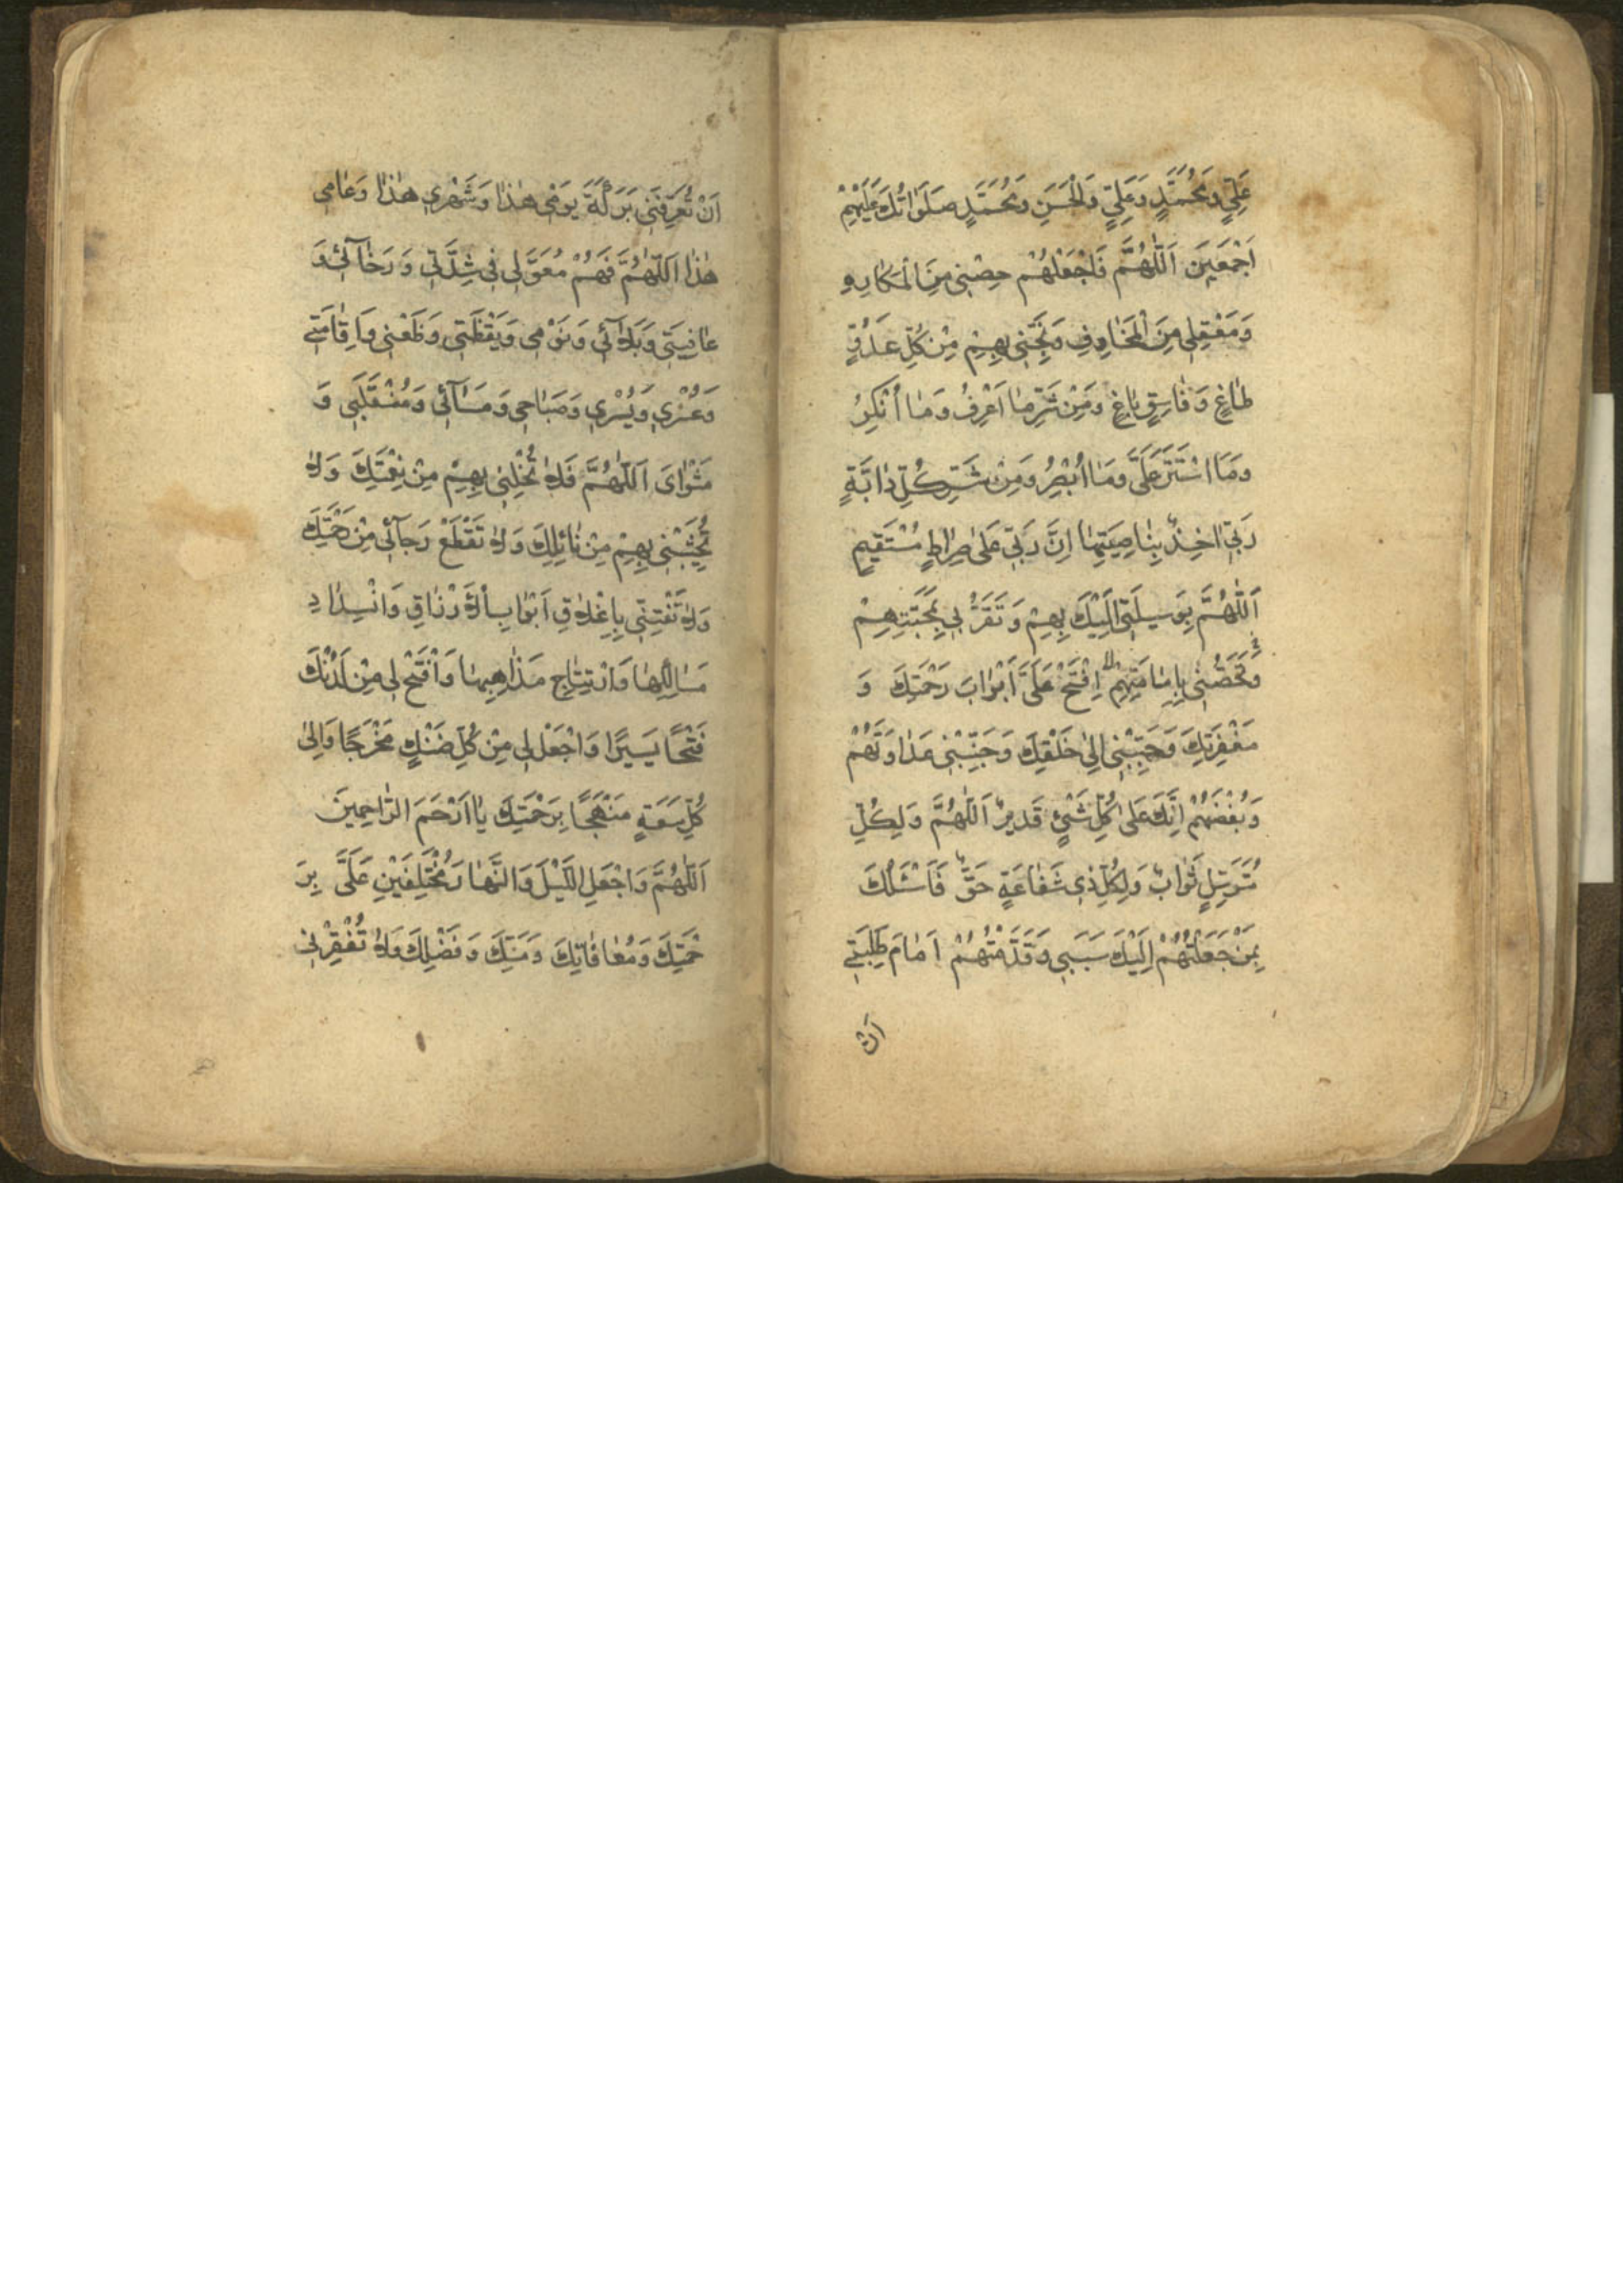 عَلِيٍّ وَمُحَمَّدٍ وَعَلِيٍّ وَالْحَسَنِ وَمُحَمَّدٍ صَلَوَاتُكَ عَلَيْهِمْ
اَجْمَعَيِنَ اَللّٰهُمَّ فَاجْعَلْهُمْ حِصْنِي مِنَ الْمَكَارِهِ
وَمَعْقِلِي مِنَ الْمَخَاوِفِ وَنَجِّنِي بِهِمْ مِنْ كُلِّ عَدُوٍّ
طَاغٍ وَفَاسِقٍ بَاغٍ وَمِنْ شَرِّ مَا اَعْرِفُ وَمَا اُنْكِرُ
وَمَا اسْتَتَرَ عَلَيَّ وَمَا اُبْصِرُ وَمِنْ شَرِّ كُلِّ دَابَّةٍ
رَبِّي اٰخِذٌ بِنَاصِيَتِهَا اِنَّ رَبِّي عَلَى صِرَاطٍ مُسْتَقِيمٍ
اَللّٰهُمَّ بِوَسِيلَتِي اِلَيْكَ بِهِمْ وَتَقَرُّبِي بِمَحَبَّتِهِمْ
وَتَحَصُّنِي بِاِمَامَتِهِمْ اِفْتَحْ عَلَيَّ اَبْوَابَ رَحْمَتِكَ وَ
مَغْفِرَتِكَ وَحَبِّبْنِي اِلٰى خَلْقِكَ وَجَنِّبْنِي عَدَاوَتَهُمْ
وَبُغْضَهُمْ اِنَّكَ عَلٰى كُلِّ شَيْءٍ قَدِيرٌ اَللّٰهُمَّ وَلِكُلِّ
مُتَوَسِّلٍ ثَوَابٌ وَلِكُلِّ ذِي شَفَاعَةٍ حَقٌّ فَاَسْئَلُكَ
بِمَنْ جَعَلْتُهُمْ اِلَيْكَ سَبَبِي وَقَدَّمْتُهُمْ اَمَامَ طَلِبَتِي
اَنْ
اَنْ تُعَرِّفَنِي بَرَكَةَ يَوْمِي هٰذَا وَشَهْرِي هٰذَا وَعَامِي
هٰذَا اَللّٰهُمَّ فَهُمْ مُعَوَّلِي فِي شِدَّتِي وَرَخَآئِي وَ
عَافِيَتِي وَبَلَآئِي وَنَوْمِي وَيَقْظَتِي وَظَعْنِي وَاِقَامَتِي
وَعُسْرِي وَيُسْرِي وَصَبَاحِي وَمَسَآئِي وَمُنْقَلَبِي وَ
مَثْوَايَ اَللّٰهُمَّ فَلَا تُخْلِنِي بِهِمْ مِنْ نِعْمَتِكَ وَلَا
تُخَيِّبْنِي بِهِمْ مِنْ نَائِلِكَ وَلَا تَقْطَعْ رَجَآئِي مِنْ رَحْمَتِكَ
وَلَا تَفْتِنِّي بِاِغْلَاقِ اَبْوَابِ الْاَرْزَاقِ وَانْسِدَادِ
مَسَالِكِهَا وَارْتِتَاجِ مَذَاهِبِهَا وَافْتَحْ لِي مِنْ لَدُنْكَ
فَتْحًا يَسِيرًا وَاجْعَلْ لِي مِنْ كُلِّ ضَنْكٍ مَخْرَجًا وَاِلٰى
كُلِّ سَعَةٍ مَنْهَجًا بِرَحْمَتِكَ يَا اَرْحَمَ الرَّاحِمِينَ
اَللّٰهُمَّ وَاجْعَلِ اللَّيْلَ وَالنَّهَارَ مُخْتَلِفَيْنِ عَلَيَّ بِرَ
حْمَتِكَ وَمُعَافَاتِكَ وَمَنِّكَ وَفَضْلِكَ وَلَا تُفْقِرْنِي